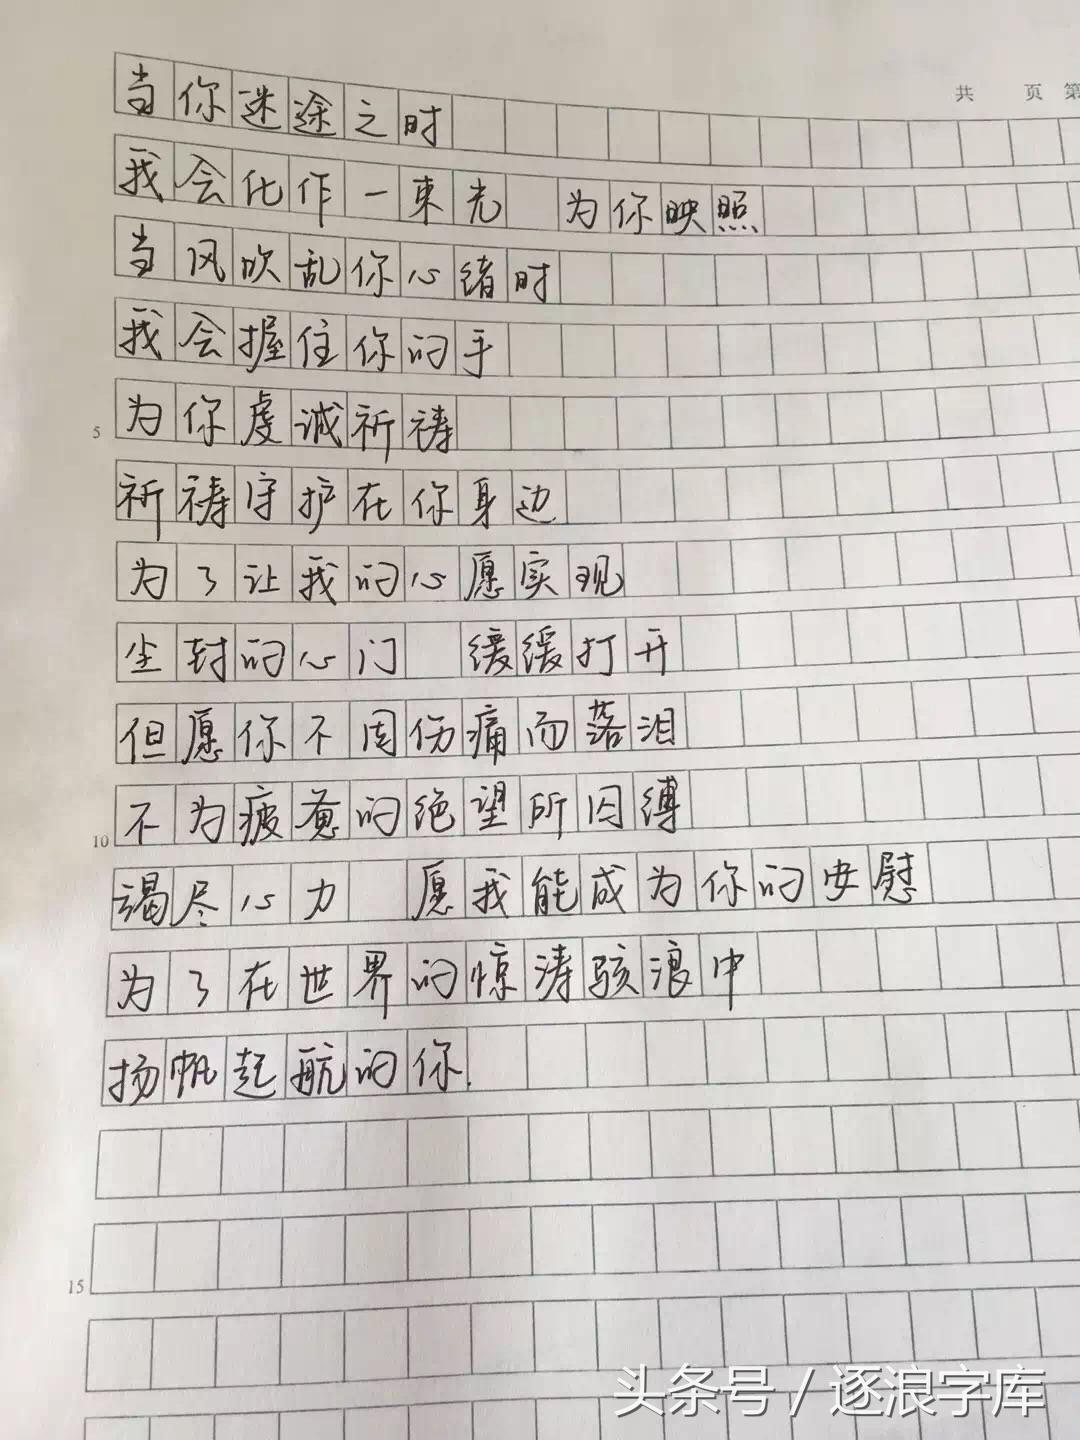 共 页 第
当你迷途之时
我会化作一束光 为你映照
当风吹乱你心绪时
我会握住你的手
5 为你虔诚祈祷
祈祷守护在你身边
为了让我的心愿实现
尘封的心门 缓缓打开
但愿你不因伤痛而落泪
10 不为疲惫的绝望所困缚
竭尽心力 愿我能成为你的安慰
为了在世界的惊涛骇浪中
扬帆起航的你.
15
头条号 / 逐浪字库